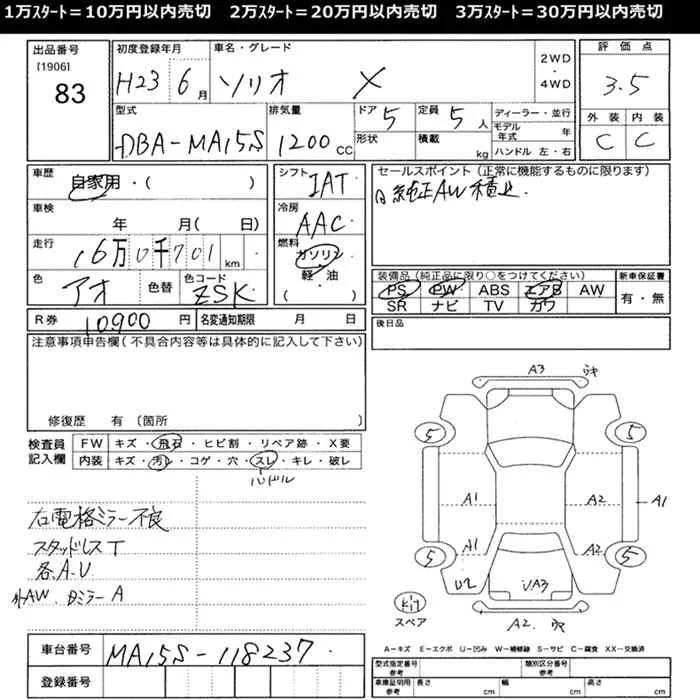 1万ｽﾀｰﾄ＝10万円以内売切　2万ｽﾀｰﾄ＝20万円以内売切　3万ｽﾀｰﾄ＝30万円以内売切
出品番号
[1906]
83
初度登録年月
H23 6月
車名・グレード
ソリオ X
2WD
・
4WD
評価点
3.5
外装 内装
C C
型式
DBA-MA15S
排気量
1200 CC
ドア
5
定員
5人
形状
積載
kg
ディーラー・並行
モデル年式 年
ハンドル 左・右
車歴
自家用・( )
車検
年 月( 日)
走行
16万0千701 km
色
アオ
色替
色コード
ZSK
シフト
IAT
冷房
AAC
燃料
ガソリン
・
軽・油
( )
セールスポイント(正常に機能するものに限ります)
純正AW積込
装備品(純正品に限り○をつけてください)
PS PW ABS エアB AW
SR ナビ TV カワ
新車保証書
有・無
R券 10900 円 名変通知期限 月 日
後日品
注意事項申告欄(不具合内容等は具体的に記入して下さい)
修復歴 有 〔箇所 〕
検査員
記入欄
FW キズ・飛石・ヒビ割・リペア跡・X要
内装 キズ・汚レ・コゲ・穴・スレ・キレ・破レ
ハンドル
右電格ミラー不良
スタッドレスT
各A.U
外AW. 日ミラーA
A3 ワキ
5 5
A1 A2 A1
A1 A2
5 5
U2 UA3
キズ
スペア
A2.
A－キズ E－エクボ U－凹み W－補修跡 S－サビ C－腐食 XX－交換済
車台番号 MA15S-118237
登録番号
型式指定番号
参考
類別区分番号
参考
車庫証明用
参考
長さ cm 幅 cm 高さ cm